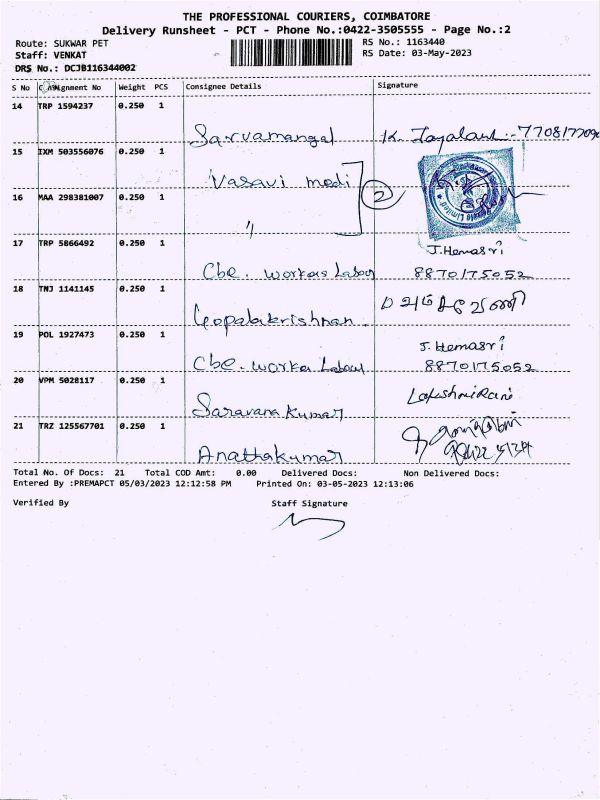 THE PROFESSIONAL COURIERS, COIMBATORE
Delivery Runsheet - PCT - Phone No.:0422-3505555 - Page No.:2
Route: SUKWAR PET
RS No.: 1163440
Staff: VENKAT
RS Date: 03-May-2023
DRS No.: DCJB116344002
S No Consignment No Weight PCS Consignee Details Signature
14 TRP 1594237 0.250 1
Sarvamangal
15 IXM 503556076 0.250 1
Vasavi medi
16 MAA 298381007 0.250 1 2
"
17 TRP 5866492 0.250 1 J.Hemasri
Cbe. workers Labour 8870175052
18 TNJ 1141145 0.250 1
Gopalakrishnan.
19 POL 1927473 0.250 1 J. Hemasri
Cbe. Worker Labour 8870175052
20 VPM 5028117 0.250 1 LakshmiRani
Saravana Kumar
21 TRZ 125567701 0.250 1
Anathakumar
Total No. Of Docs: 21 Total COD Amt: 0.00 Delivered Docs: Non Delivered Docs:
Entered By :PREMAPCT 05/03/2023 12:12:58 PM Printed On: 03-05-2023 12:13:06
Verified By Staff Signature